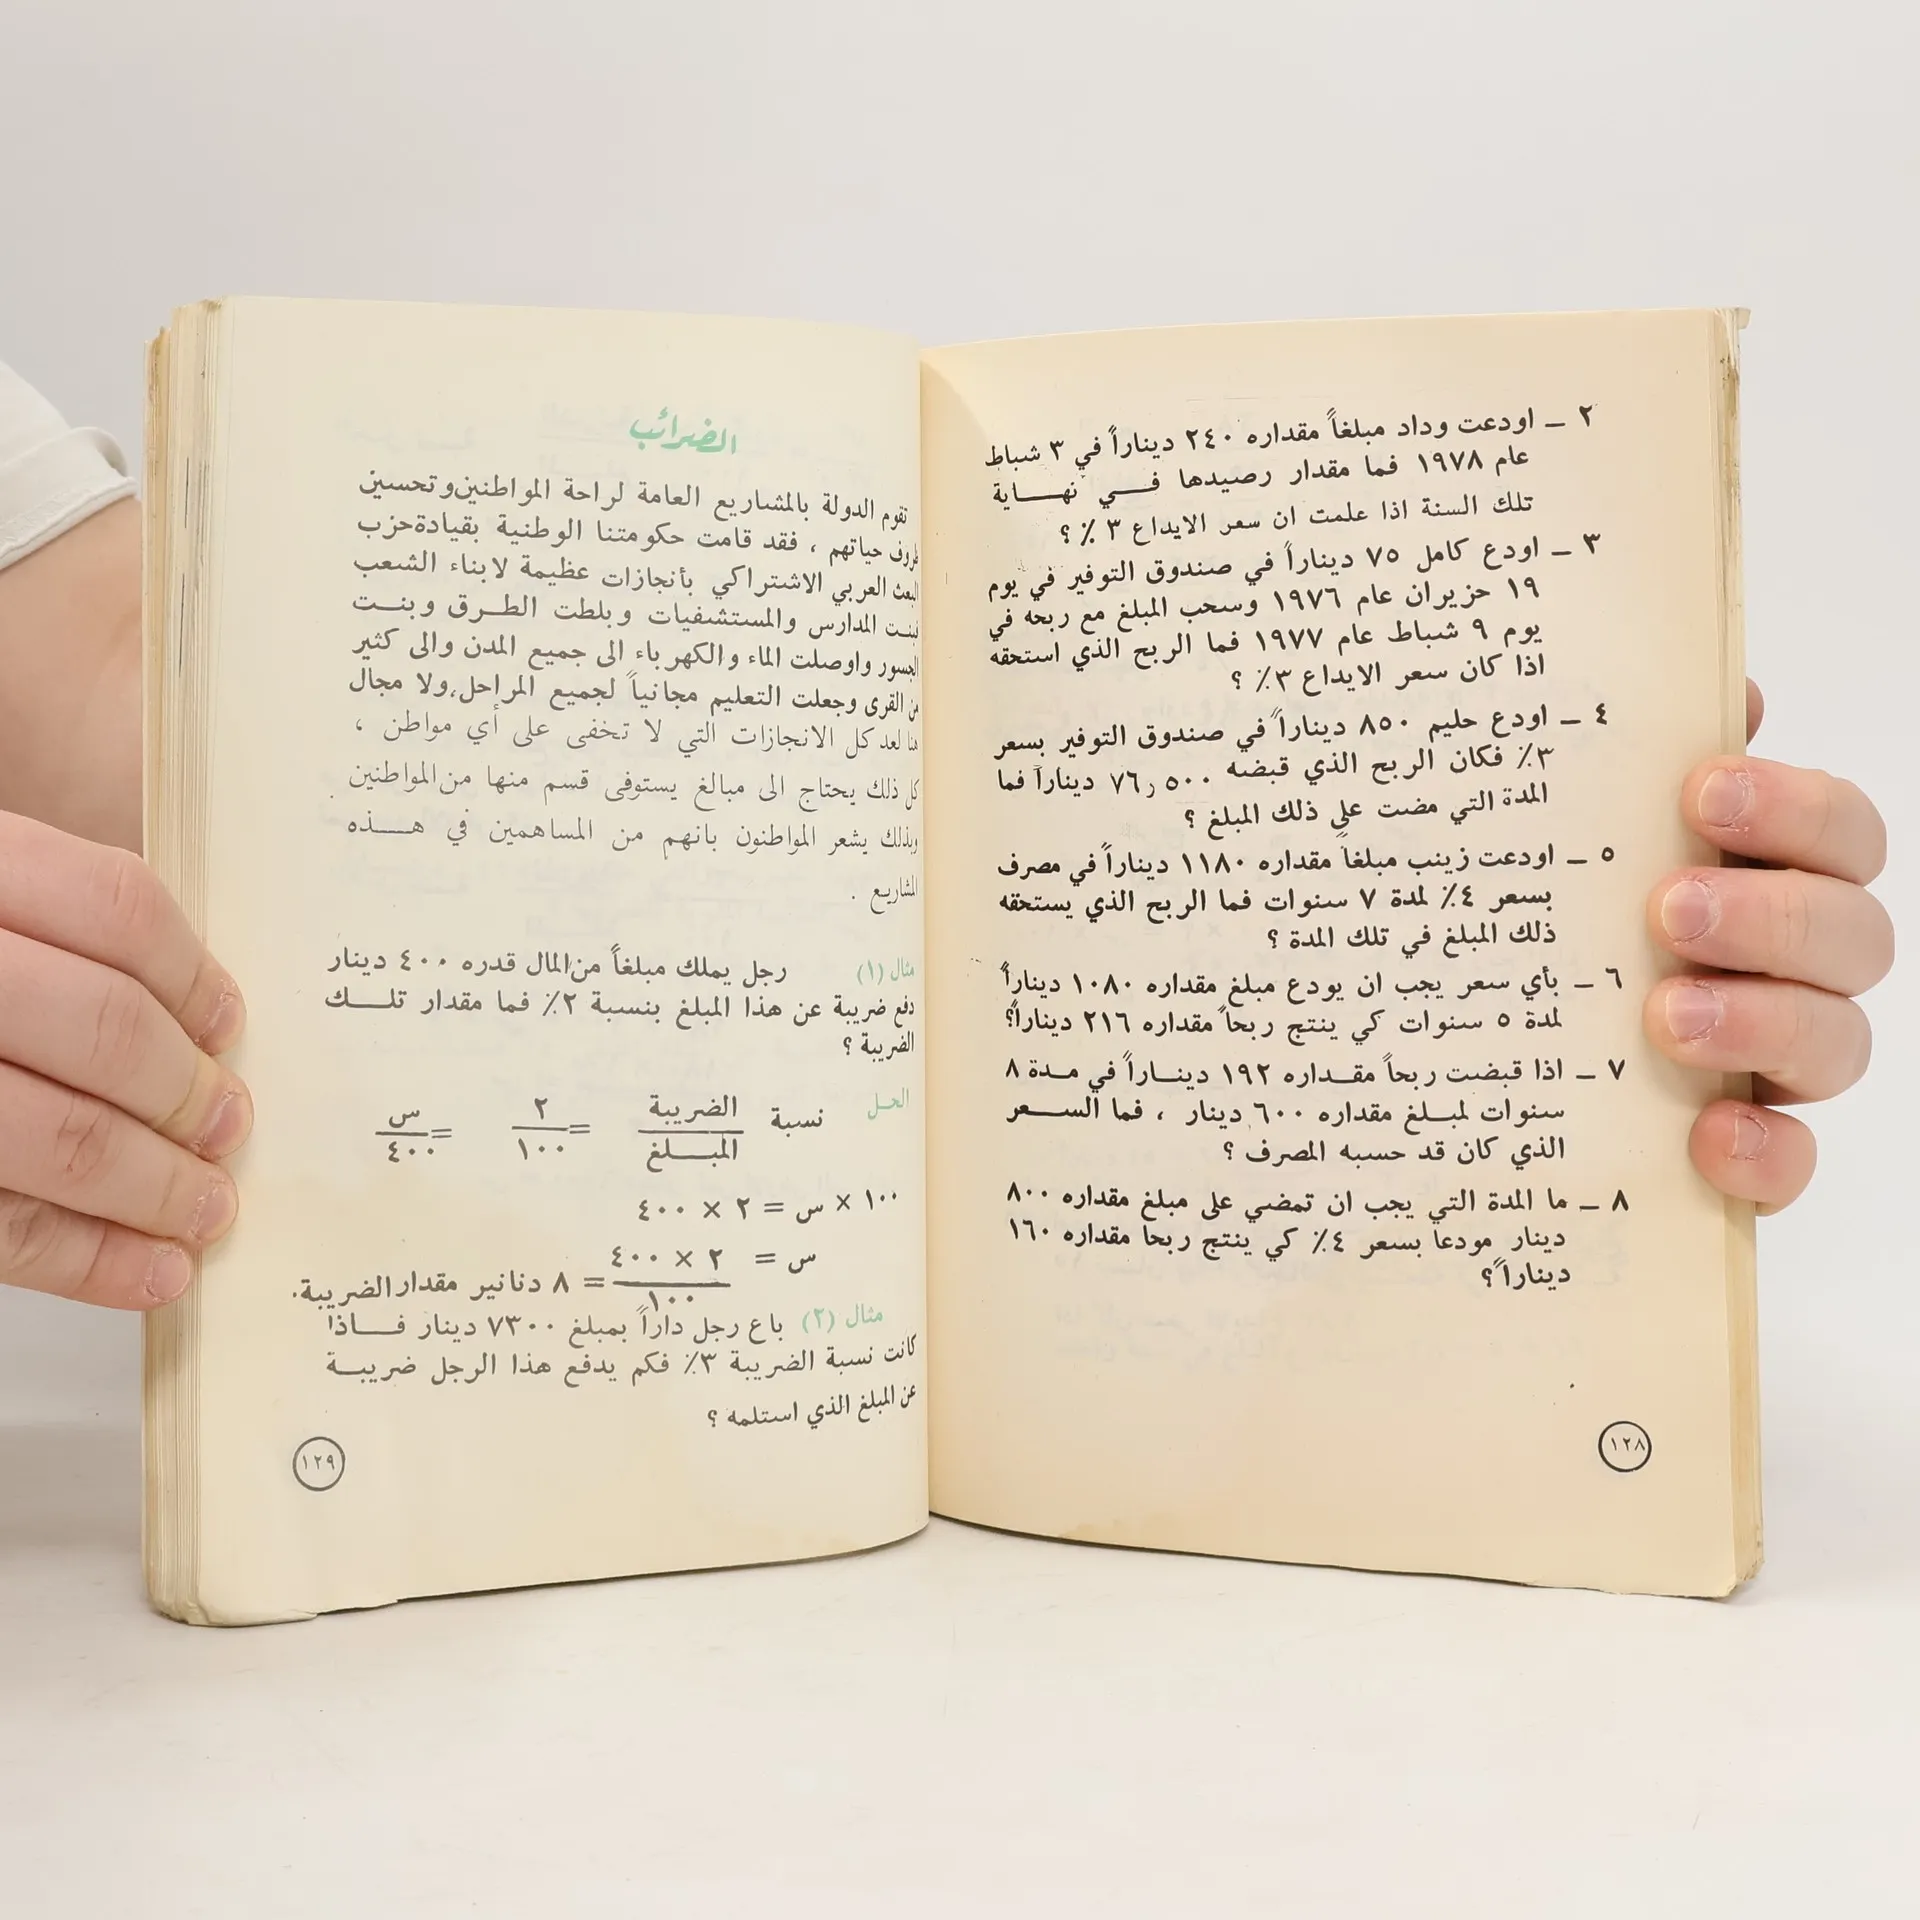 ٢ ـ اودعت وداد مبلغاً مقداره ٢٤٠ ديناراً في ٣ شباط
عام ١٩٧٨ فما مقدار رصيدها في نهاية
تلك السنة اذا علمت ان سعر الايداع ٣ ٪ ؟
٣ ـ اودع كامل ٧٥ ديناراً في صندوق التوفير في يوم
١٩ حزيران عام ١٩٧٦ وسحب المبلغ مع ربحه في
يوم ٩ شباط عام ١٩٧٧ فما الربح الذي استحقه
اذا كان سعر الايداع ٣٪ ؟
٤ ـ اودع حليم ٨٥٠ ديناراً في صندوق التوفير بسعر
٣٪ فكان الربح الذي قبضه ٧٦٫٥٠٠ ديناراً فما
المدة التي مضت على ذلك المبلغ ؟
٥ ـ اودعت زينب مبلغاً مقداره ١١٨٠ ديناراً في مصرف
بسعر ٤٪ لمدة ٧ سنوات فما الربح الذي يستحقه
ذلك المبلغ في تلك المدة ؟
٦ ـ بأي سعر يجب ان يودع مبلغ مقداره ١٠٨٠ ديناراً
لمدة ٥ سنوات كي ينتج ربحاً مقداره ٢١٦ ديناراً؟
٧ ـ اذا قبضت ربحاً مقداره ١٩٢ ديناراً في مدة ٨
سنوات لمبلغ مقداره ٦٠٠ دينار ، فما السعر
الذي كان قد حسبه المصرف ؟
٨ ـ ما المدة التي يجب ان تمضي على مبلغ مقداره ٨٠٠
دينار مودعا بسعر ٤٪ كي ينتج ربحا مقداره ١٦٠
ديناراً ؟
١٢٨
الضرائب
تقوم الدولة بالمشاريع العامة لراحة المواطنين وتحسين
ظروف حياتهم ، فقد قامت حكومتنا الوطنية بقيادة حزب
البعث العربي الاشتراكي بأنجازات عظيمة لابناء الشعب
فبنت المدارس والمستشفيات وبلطت الطرق وبنت
الجسور واوصلت الماء والكهرباء الى جميع المدن والى كثير
من القرى وجعلت التعليم مجانياً لجميع المراحل، ولا مجال
هنا لعد كل الانجازات التي لا تخفى على أي مواطن ،
كل ذلك يحتاج الى مبالغ يستوفى قسم منها من المواطنين
وبذلك يشعر المواطنون بانهم من المساهمين في هذه
المشاريع .
مثال (١) رجل يملك مبلغاً من المال قدره ٤٠٠ دينار
دفع ضريبة عن هذا المبلغ بنسبة ٢٪ فما مقدار تلك
الضريبة ؟
الحل نسبة الضريبة / المبلغ = ٢ / ١٠٠ = س / ٤٠٠
١٠٠ × س = ٢ × ٤٠٠
س = ٢ × ٤٠٠ / ١٠٠ = ٨ دنانير مقدار الضريبة.
مثال (٢) باع رجل داراً بمبلغ ٧٣٠٠ دينار فاذا
كانت نسبة الضريبة ٣٪ فكم يدفع هذا الرجل ضريبة
عن المبلغ الذي استلمه ؟
١٢٩